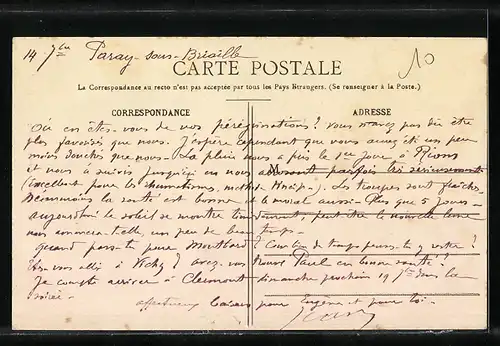 14 7bre Paray-sous-Briaille
10
CARTE POSTALE
La Correspondance au recto n'est pas acceptée par tous les Pays Etrangers. (Se renseigner à la Poste.)
CORRESPONDANCE
ADRESSE
Où en êtes-vous de vos pérégrinations? Vous n'avez pas dû être
plus favorisés que nous. J'espère cependant que vous avez été un peu
moins douchés que nous. La pluie nous a pris le 1er jour à Riom
et nous a suivis jusqu'ici en nous parfois très sérieusement
M
(Excellent pour les rhumatismes, Kneip). Les troupes sont fraîches
Néanmoins la santé est bonne et le moral aussi. Plus que 5 jours
aujourd'hui le soleil se montre timidement, peut-être la nouvelle lune
nous ramènera-t-elle un peu de beau temps.
Quand pars-tu pour Montbard? Combien de temps penses-tu y rester?
Etes-vous allés à Vichy? avez-vous trouvé Paul en bonne santé?
Je compte arriver à Clermont dimanche prochain 19 7bre dans la
soirée.
affectueux baisers pour Eugène et pour toi.
Jean